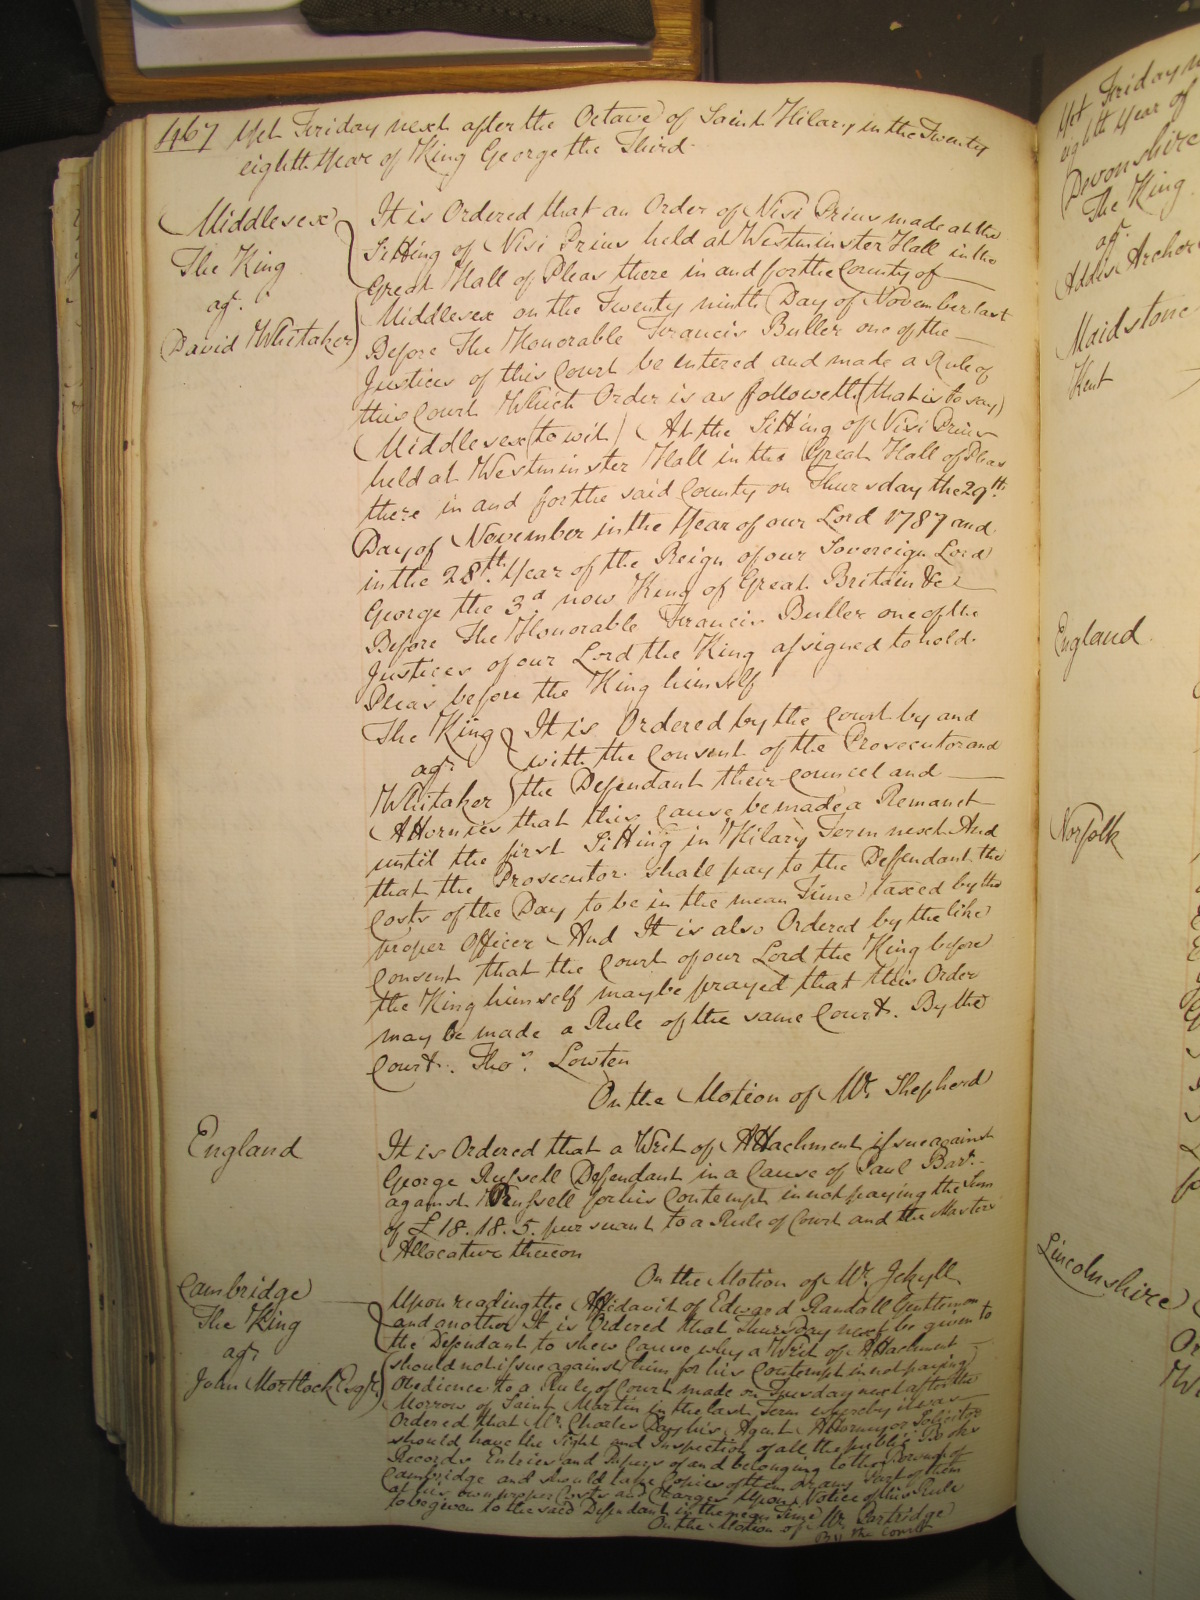 467 Yet Friday next after the Octave of Saint Hilary in the Twenty
eighth Year of King George the Third.
Middlesex
The King
agt.
David Whitaker
It is Ordered that an Order of Nisi Prius made at the
Sitting of Nisi Prius held at Westminster Hall in the
Great Hall of Pleas there in and for the County of
Middlesex on the Twenty ninth Day of November last
Before The Honorable Francis Buller one of the
Justices of this Court be entered and made a Rule of
this Court Which Order is as followeth (that is to say)
Middlesex (to wit) At the Sitting of Nisi Prius
held at Westminster Hall in the Great Hall of Pleas
there in and for the said County on Thursday the 29th.
Day of November in the Year of our Lord 1787 and
in the 28th. Year of the Reign of our Sovereign Lord
George the 3d now King of Great Britain &c
Before The Honorable Francis Buller one of the
Justices of our Lord the King assigned to hold
Pleas before the King himself
The King
agt.
Whitaker
It is Ordered by the Court by and
with the Consent of the Prosecutor and
the Defendant their Councel and
Attornies that this Cause be made a Remanet
until the first Sitting in Hilary Term next And
that the Prosecutor shall pay to the Defendant the
Costs of the Day to be in the mean Time taxed by the
proper Officer And It is also Ordered by the like
Consent that the Court of our Lord the King before
the King himself may be prayed that this Order
may be made a Rule of the same Court. By the
Court. Thos. Lowten
On the Motion of Mr. Shepherd
England
It is Ordered that a Writ of Attachment issue against
George Russell Defendant in a Cause of Paul Bart.
against Russell for his Contempt in not paying the Sum
of £18.18.5. pursuant to a Rule of Court and the Masters
Allocatur thereon
On the Motion of Mr. Jekyll
Cambridge
The King
agt.
John Mortlock Esqr.
Upon reading the Affidavit of Edward Randall Gentleman
and another It is Ordered that Thursday next be given to
the Defendant to shew Cause why a Writ of Attachment
should not issue against him for his Contempt in not paying
Obedience to a Rule of Court made on Tuesday next after the
Morrow of Saint Martin in the last Term whereby it was
Ordered that Mr. Charles Day his Agent Attorney or Solicitor
should have the Sight and Inspection of all the public Books
Records Entries and Papers of and belonging to the Borough of
Cambridge and should take Copies of them or any Part of them
at his own proper Costs and Charges Upon Notice of this Rule
to be given to the said Defendant in the mean Time
On the Motion of Mr. Partridge
By the Court
Yet Friday
eighth Year of
Devonshire
The King
agt.
Archer
Maidstone
Kent
England
Norfolk
Lincolnshire